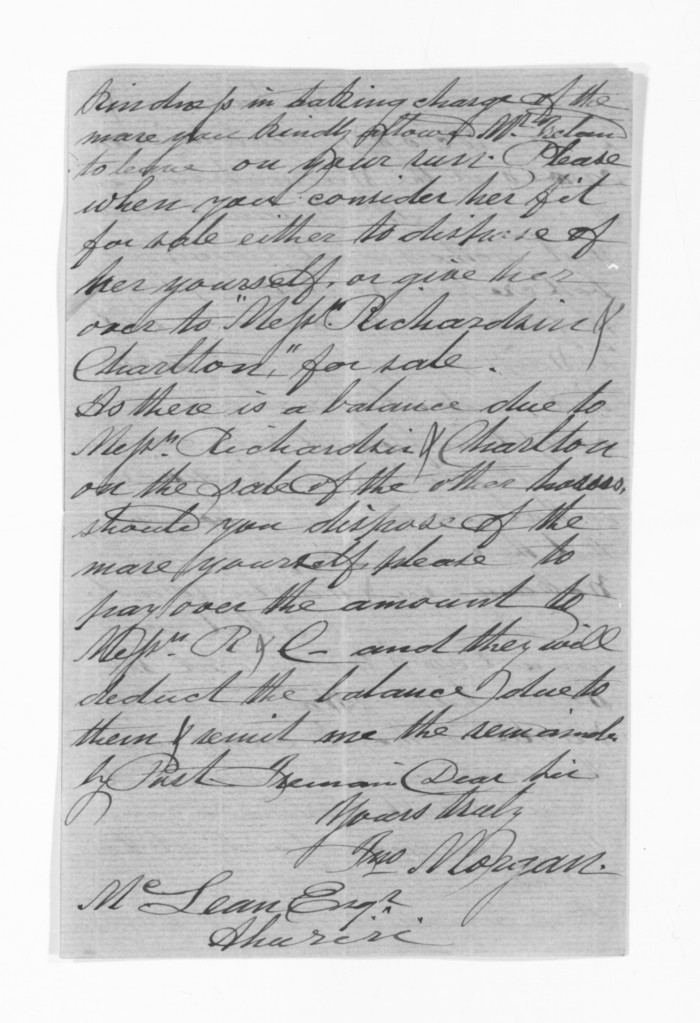 kindness in taking charge of the
mare you kindly allowed Mr.
to leave on your run. Please
when you consider her fit
for sale either to dispose of
her yourself, or give her
over to "Messrs. Richardson &
Charlton," for sale.
As there is a balance due to
Messrs. Richardson & Charlton
on the sale of the other horses,
should you dispose of the
mare yourself, please to
pay over the amount to
Messrs. R & C - and they will
deduct the balance due to
them & remit me the remainder
by Post I remain Dear Sir
Yours truly
Jno Morgan.
McLean Esqr.
Ahuriri